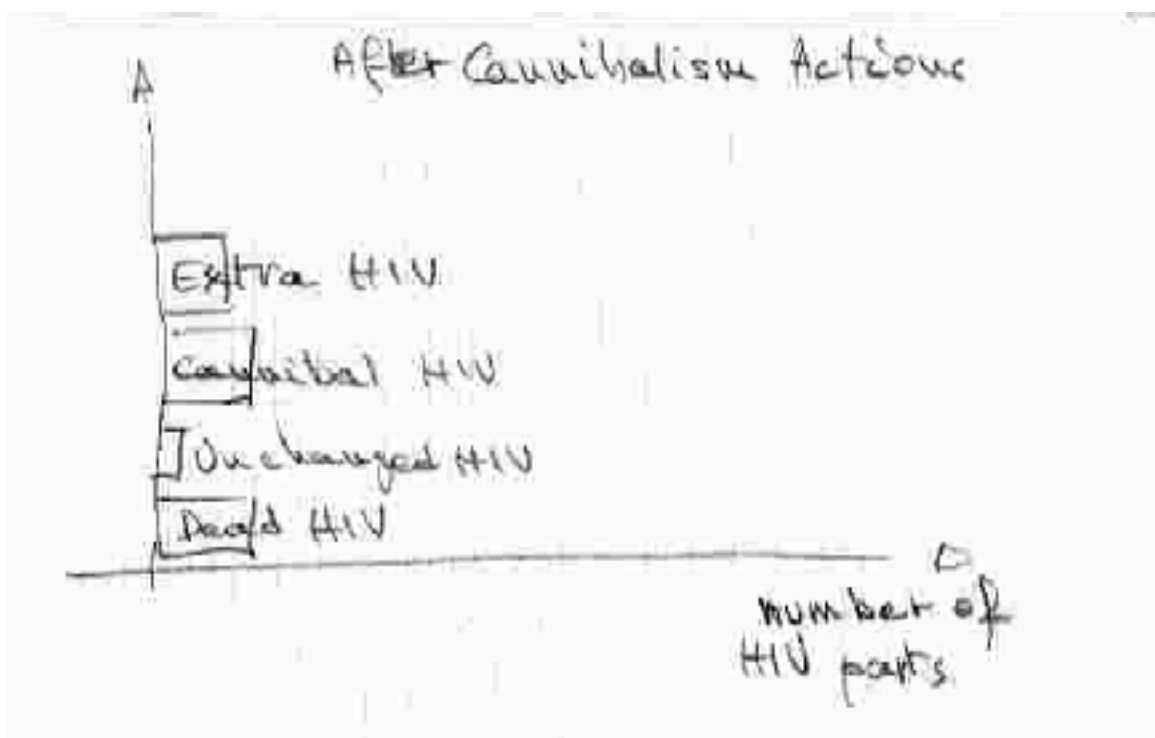 After Cannibalism Actions
Extra HIV
Cannibal HIV
Unchanged HIV
Dead HIV
number of
HIV parts